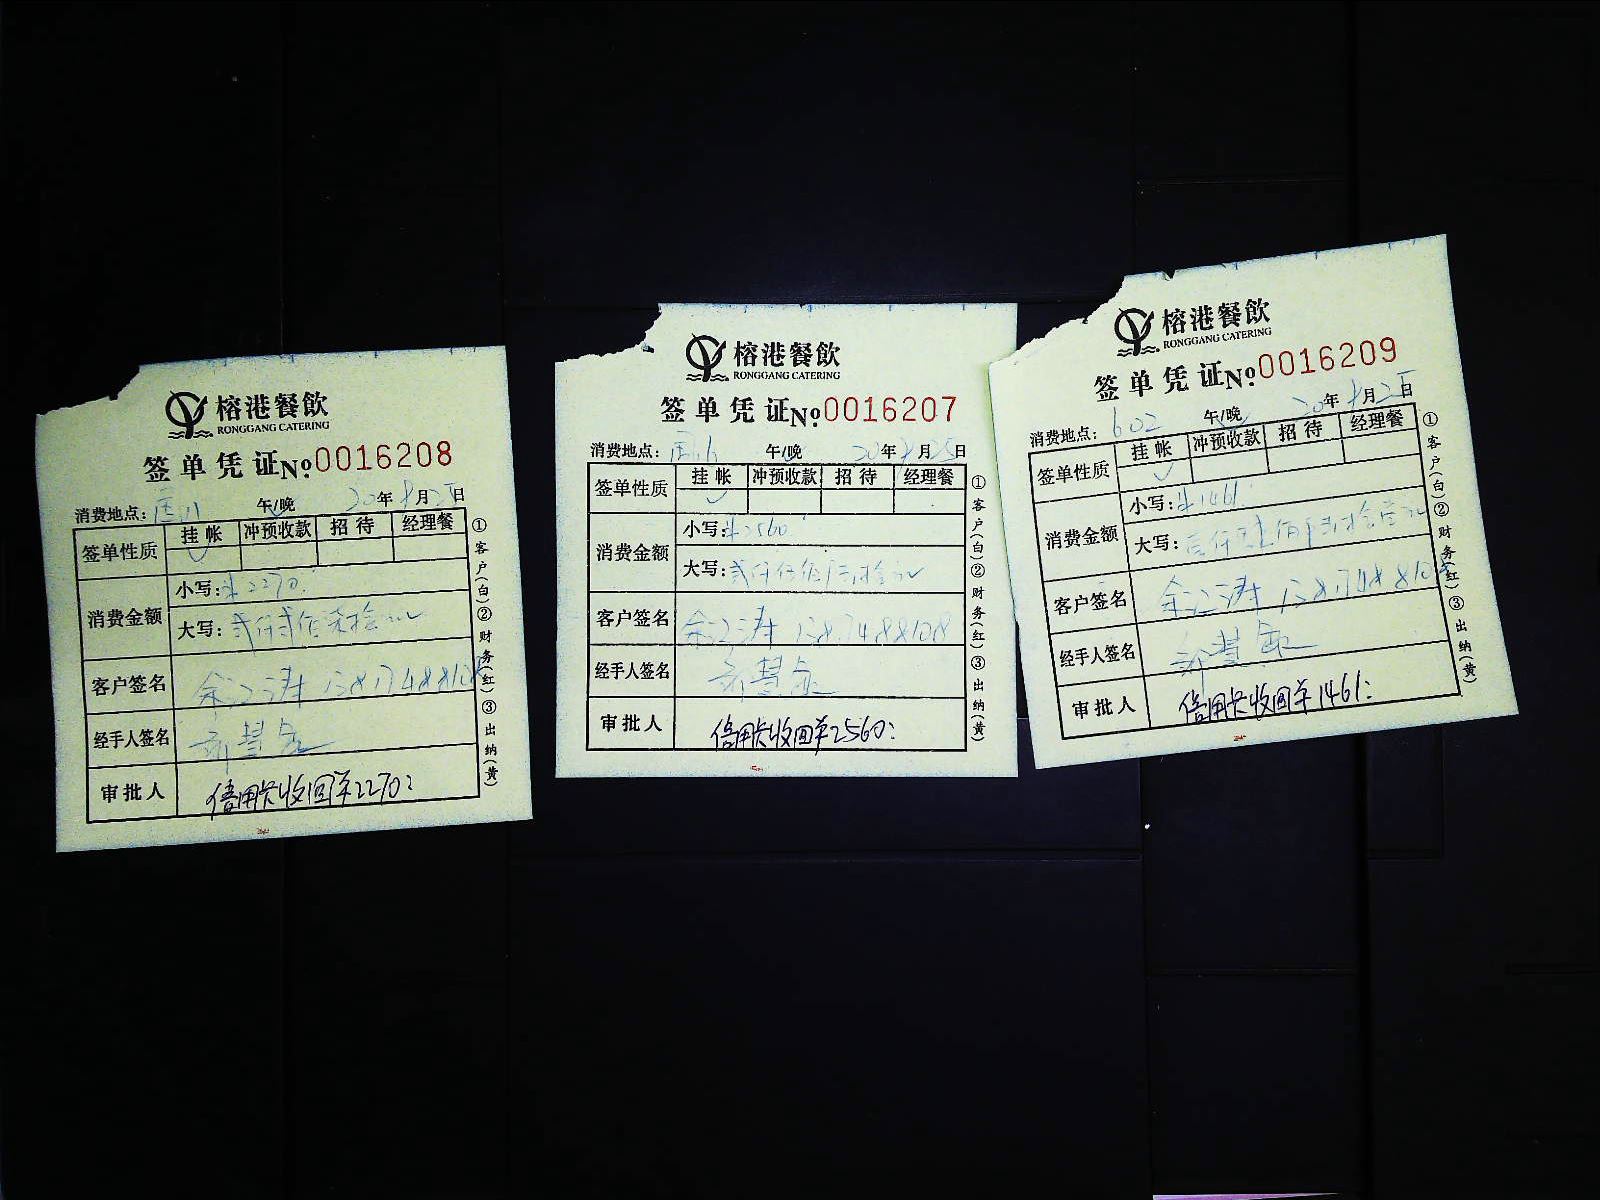 榕港餐飲
RONGGANG CATERING
签单凭证 No 0016208
消费地点: 午/晚 20年8月25日
签单性质 挂帐 冲预收款 招待 经理餐
消费金额 小写: ¥2270.
大写: 贰仟贰佰柒拾元
客户签名
经手人签名
审批人 信用卡收回单2270:
①客户(白)②财务(红)③出纳(黄)
榕港餐飲
RONGGANG CATERING
签单凭证 No 0016207
消费地点: 午/晚 20年8月25日
签单性质 挂帐 冲预收款 招待 经理餐
消费金额 小写: ¥2560
大写: 贰仟伍佰陆拾元
客户签名
经手人签名
审批人 信用卡收回单2560:
①客户(白)②财务(红)③出纳(黄)
榕港餐飲
RONGGANG CATERING
签单凭证 No 0016209
消费地点: 602 午/晚 20年8月25日
签单性质 挂帐 冲预收款 招待 经理餐
消费金额 小写: ¥1461.
大写: 壹仟肆佰陆拾壹元
客户签名
经手人签名
审批人 信用卡收回单1461:
①客户(白)②财务(红)③出纳(黄)